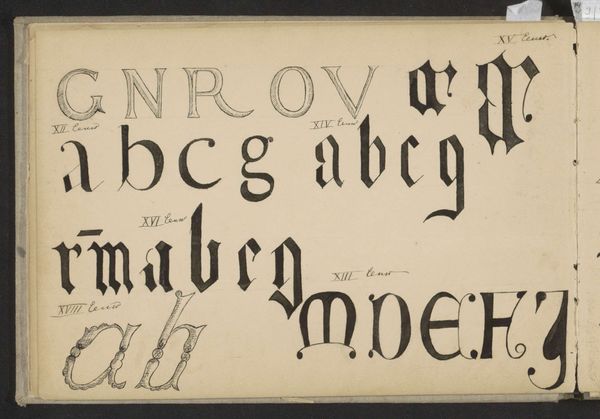 XV Eeuw.
G N R O V
XII Eeuw
XIV Eeuw
a b c g a b c g
XVI Eeuw
r m̄ a b c g
XIII Eeuw
XVIII Eeuw
M D E H J
a b